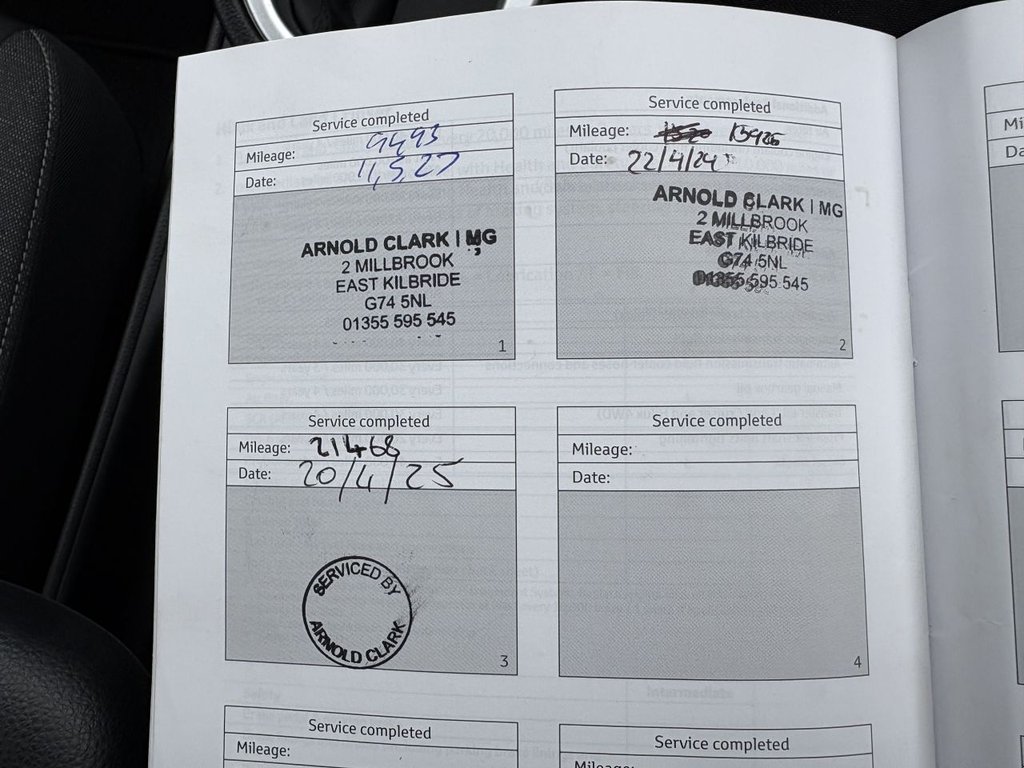 Service completed
Mileage: 9493
Date: 11,5,27
ARNOLD CLARK | MG
2 MILLBROOK
EAST KILBRIDE
G74 5NL
01355 595 545
1
Service completed
Mileage:
Date: 22/4/24
ARNOLD CLARK | MG
2 MILLBROOK
EAST KILBRIDE
G74 5NL
01355 595 545
2
Service completed
Mileage: 21468
Date: 20/4/25
SERVICED BY
ARNOLD CLARK
3
Service completed
Mileage:
Date:
4
Service completed
Mileage:
Service completed
Mileage: